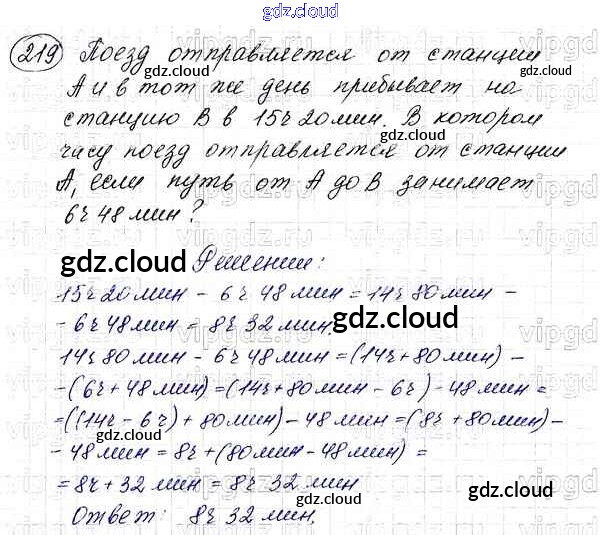 gdz.cloud
219 Поезд отправляется от станции
А и в тот же день прибывает на
станцию В в 15ч 20мин. В котором
часу поезд отправляется от станции
А, если путь от А до В занимает
6ч 48 мин?
Решение:
15ч 20мин - 6ч 48 мин = 14ч 80мин -
- 6ч 48мин = 8ч 32 мин.
14ч 80мин - 6ч 48мин = (14ч + 80мин) -
- (6ч + 48мин) = (14ч + 80мин - 6ч) - 48мин =
= ((14ч - 6ч) + 80мин) - 48мин = (8ч + 80мин) -
- 48мин = 8ч + (80мин - 48мин) =
= 8ч + 32мин = 8ч 32мин
Ответ: 8ч 32мин.